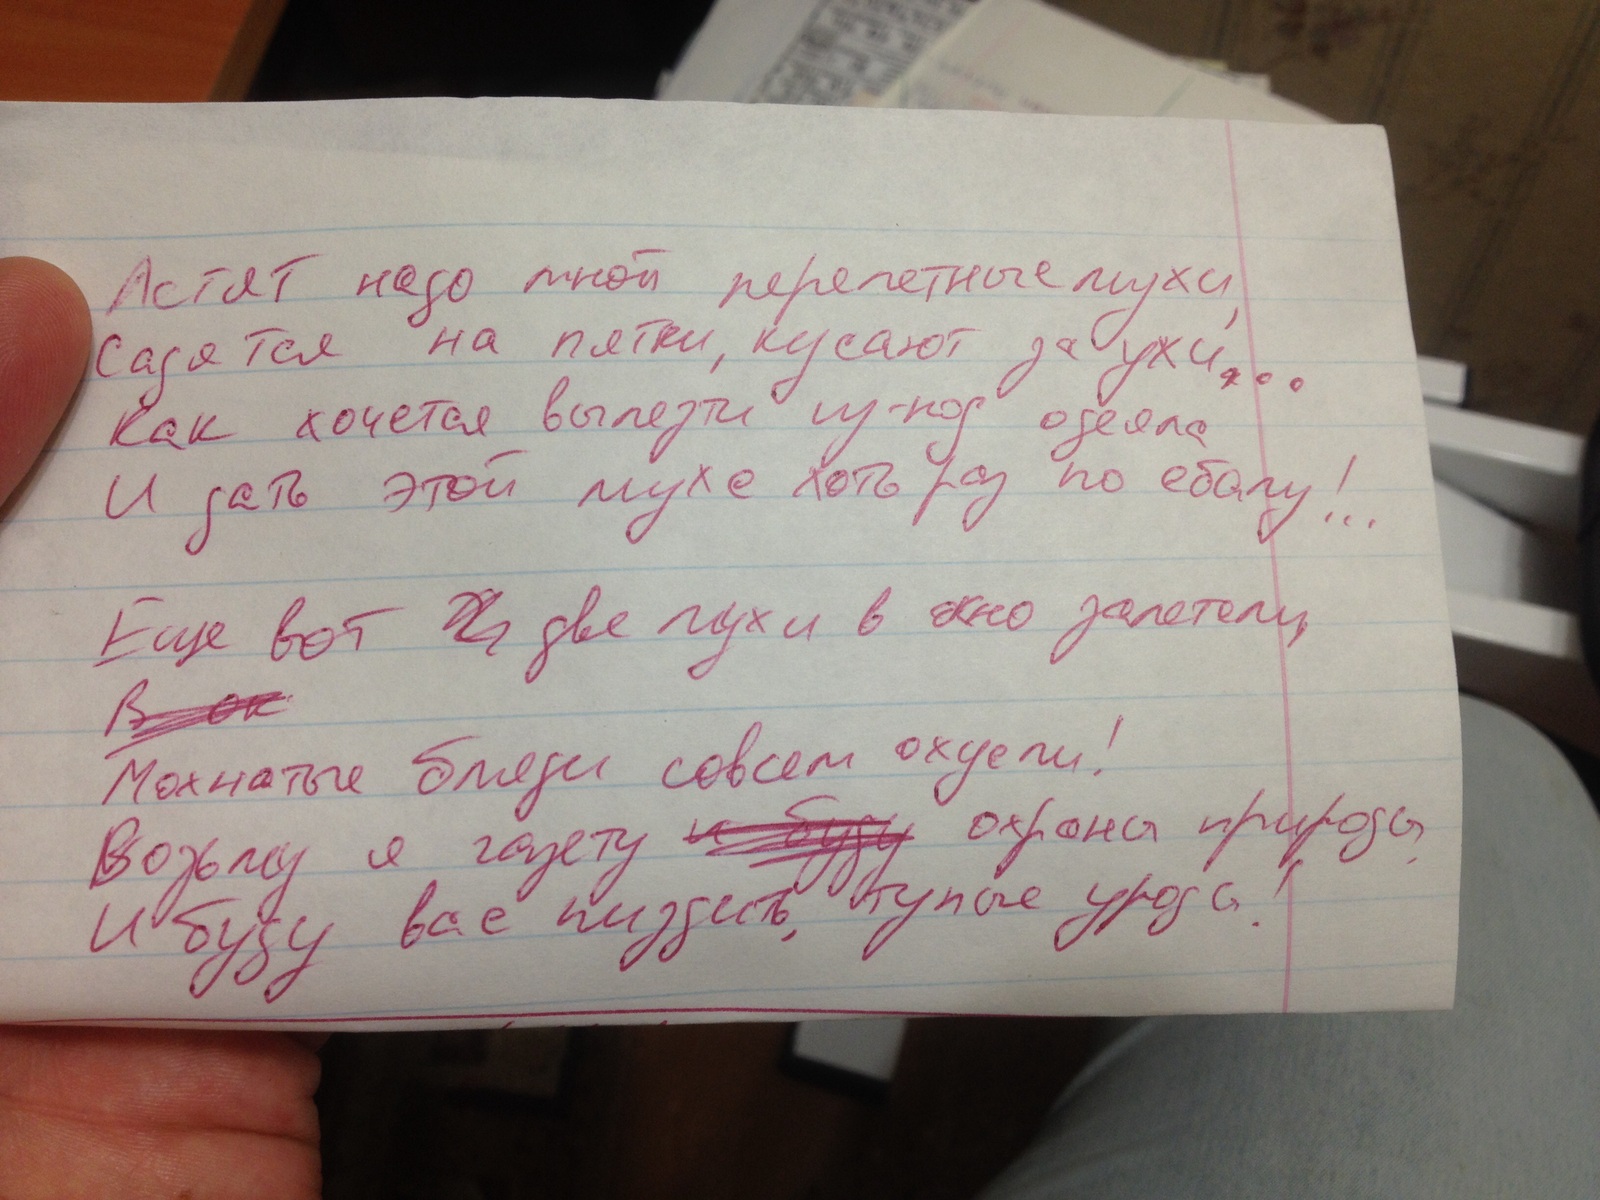 Астят надо мной перелетные мухи,
Садятся на пятки, кусают за ухи,...
Как хочется вылезти из-под одеяла
И дать этой мухе хоть раз по ебалу!...
Еще вот две мухи в окно залетели,
В ок
Мохнатые бляди совсем охуели!
Возьму я газету и буду охраны природы
И буду вас пиздить, тупые уроды!